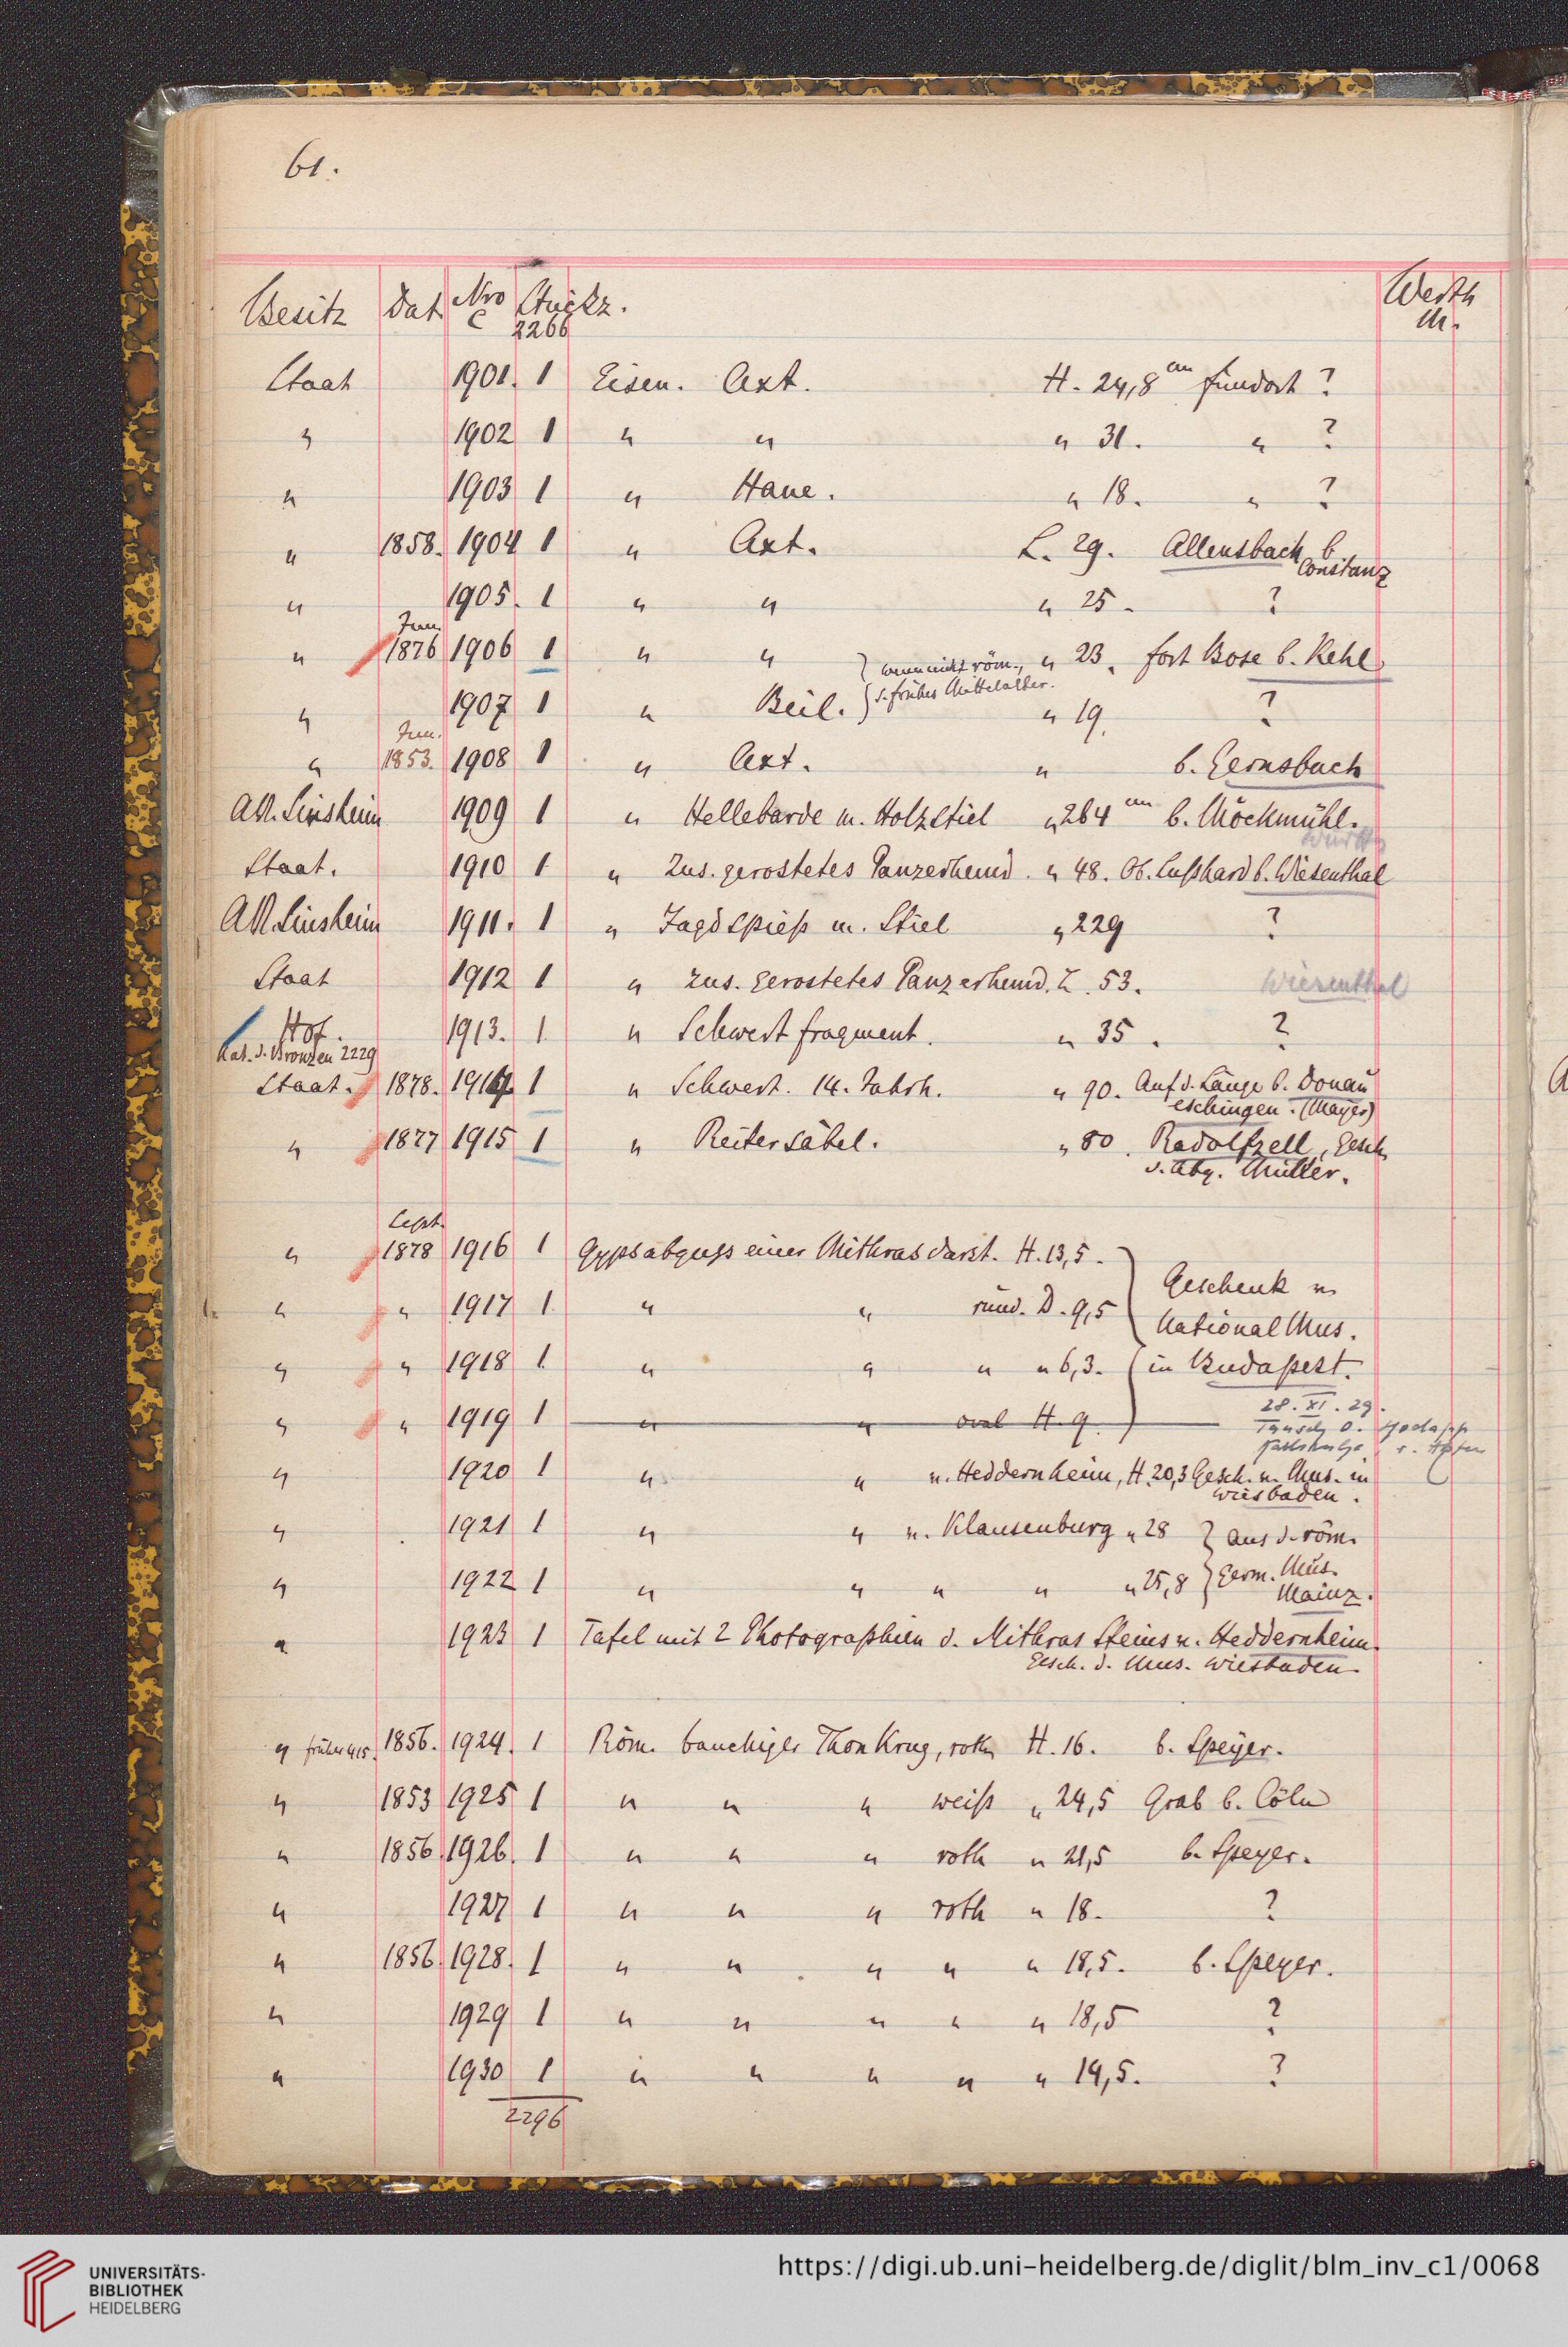 61.
Besitz Dat. Nro C Stückz. 2266 Werth M.
Staat 1901. 1 Eisen. Axt. H. 24,8 cm Fundort ?
" 1902 1 " " " 31. " ?
" 1903 1 " Haue. " 18. " ?
" 1858. 1904 1 " Axt. L. 29. Allensbach b. Constanz
" 1905. 1 " " " 25. ?
" Jun. 1876 1906 1 " " } wenn nicht röm., " 23. Fort Bose b. Kehl
" 1907 1 " Beil. } s. frühes Mittelalter. " 19. ?
" Jun. 1853. 1908 1 " Axt. " b. Gernsbach
AV. Sinsheim 1909 1 " Hellebarde m. Holzstiel " 264 cm b. Möckmühl.
Württ
Staat. 1910 1 " Zus. gerostetes Panzerhemd. " 48. Ob. Lußhard b. Wiesenthal
AV. Sinsheim 1911. 1 " Jagdspieß m. Stiel " 229 ?
Staat 1912 1 " Zus. gerostetes Panzerhemd. L. 53. Wiesenthal
Hof. 1913. 1. " Schwertfragment. " 35. ?
Kat. d. Bronzen 2229
Staat. 1878. 1914 1 " Schwert. 14. Jahrh. " 90. Auf d. Länge b. Donau
eschingen. (Mayer)
" 1877 1915 1 " Reitersäbel. " 80. Radolfzell, Gesch.
v. Abg. Müller.
" Sept. 1878 1916 1 Gypsabguss einer Mithrasdarst. H. 13,5.
" " 1917 1. " " rund. D. 9,5 } Geschenk v. National Mus.
" " 1918 1. " " " " 6,3. in Budapest.
" " 1919 1 " " oval H. 9. 28. XI. 29.
Tausch
" 1920 1 " " v. Heddernheim, H. 20,3 Gesch. v. Mus. in
Wiesbaden.
" 1921 1 " " v. Klausenburg " 28 } aus d. röm.
" 1922 1 " " " " " 25,8 } Germ. Mus.
Mainz.
" 1923 1 Tafel mit 2 Photographien d. Mithras Steins v. Heddernheim.
Gesch. d. Mus. Wiesbaden.
" früher 415. 1856. 1924. 1 Röm. bauchiger Thon Krug, roth H. 16. b. Speyer.
" 1853 1925 1 " " " weiß " 24,5 Grab b. Cöln
" 1856 1926. 1 " " " roth " 21,5 b. Speyer.
" 1927 1 " " " roth " 18. ?
" 1856 1928. 1 " " " " " 18,5. b. Speyer.
" 1929 1 " " " " " 18,5 ?
" 1930 1 " " " " " 14,5. ?
2296
UNIVERSITÄTS-
BIBLIOTHEK
HEIDELBERG
https://digi.ub.uni-heidelberg.de/diglit/blm_inv_c1/0068